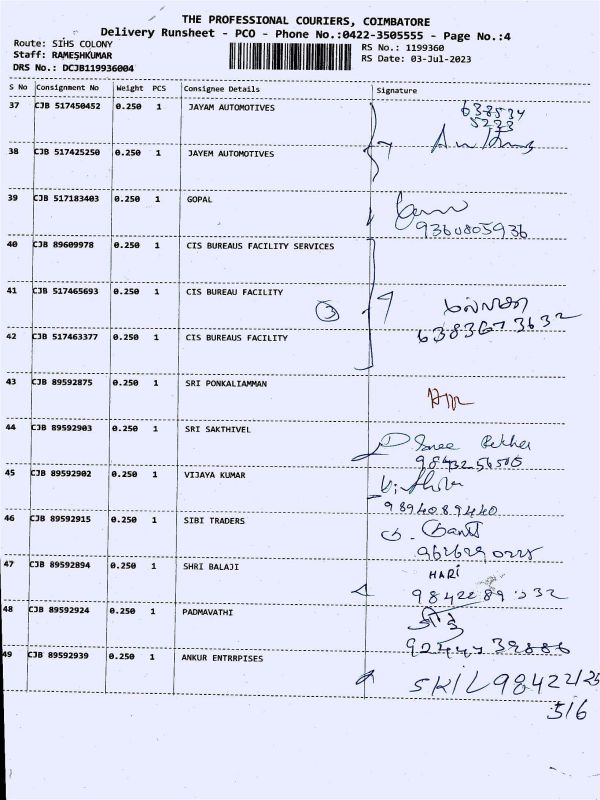 THE PROFESSIONAL COURIERS, COIMBATORE
Delivery Runsheet - PCO - Phone No.:0422-3505555 - Page No.:4
Route: SIHS COLONY
RS No.: 1199360
Staff: RAMESHKUMAR
RS Date: 03-Jul-2023
DRS No.: DCJB119936004
S No Consignment No Weight PCS Consignee Details Signature
37 CJB 517450452 0.250 1 JAYAM AUTOMOTIVES 638534
5233
38 CJB 517425250 0.250 1 JAYEM AUTOMOTIVES
39 CJB 517183403 0.250 1 GOPAL
9360805936
40 CJB 89609978 0.250 1 CIS BUREAUS FACILITY SERVICES
41 CJB 517465693 0.250 1 CIS BUREAU FACILITY
3
6383673632
42 CJB 517463377 0.250 1 CIS BUREAUS FACILITY
43 CJB 89592875 0.250 1 SRI PONKALIAMMAN
44 CJB 89592903 0.250 1 SRI SAKTHIVEL
45 CJB 89592902 0.250 1 VIJAYA KUMAR
9894089440
46 CJB 89592915 0.250 1 SIBI TRADERS
47 CJB 89592894 0.250 1 SHRI BALAJI HARI
48 CJB 89592924 0.250 1 PADMAVATHI
49 CJB 89592939 0.250 1 ANKUR ENTRRPISES
SKIL 98422125
516